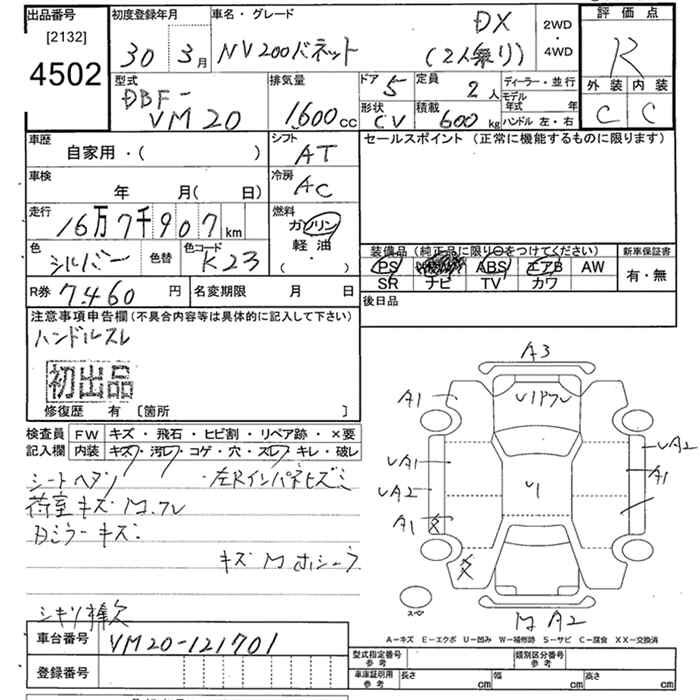 出品番号
[2132]
4502
初度登録年月
30年 3月
車名・グレード
NV200バネット
DX
(2人乗り)
2WD
・
4WD
評価点
R
外装 内装
C C
型式
DBF-
VM20
排気量
1,600cc
ドア 5
定員 2人
形状 CV
積載 600kg
ディーラー・並行
モデル年式 年
ハンドル 左・右
車歴
自家用・( )
シフト
AT
セールスポイント (正常に機能するものに限ります)
車検
年 月( 日)
冷房
AC
走行
16万7千907km
燃料
ガソリン
軽油
( ・ )
色
シルバー
色替
色コード
K23
装備品 (純正品に限り○をつけてください)
新車保証書
PS ABS エアB AW
有・無
SR ナビ TV カワ
R券 7,460円
名変期限 月 日
後日品
注意事項申告欄(不具合内容等は具体的に記入して下さい)
ハンドルスレ
初出品
修復歴 有 [箇所 ]
検査員
記入欄
FW キズ・飛石・ヒビ割・リペア跡・×要
内装 キズ・汚レ・コゲ・穴・スレ・キレ・破レ
シートヘタリ
・左Rインパネヒズミ
荷室キズ
キズ
シキリ棒欠
車台番号
VM20-121701
登録番号
A3
A1
UA1
UA2
A1
U1
UA2
A1
A2
スペア
A-キズ E-エクボ U-凹み W-補修跡 S-サビ C-腐食 XX-交換済
型式指定番号
参考
類別区分番号
参考
車庫証明用
参考
長さ cm 幅 cm 高さ cm